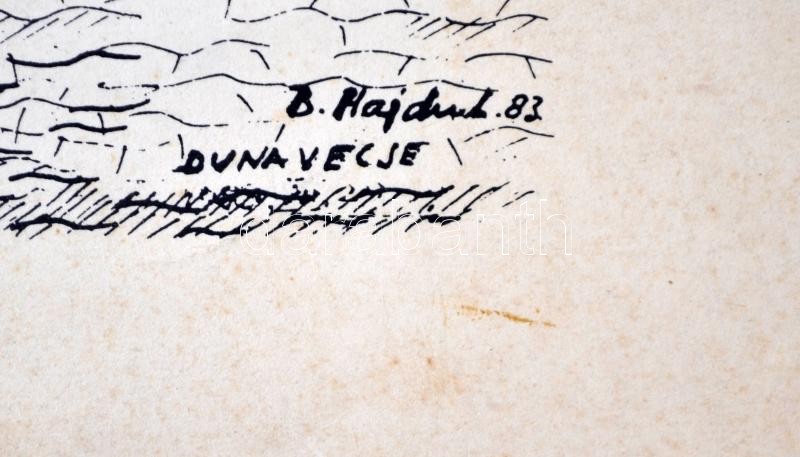 B. Hajduch. 83
DUNAVECSE
darabanth